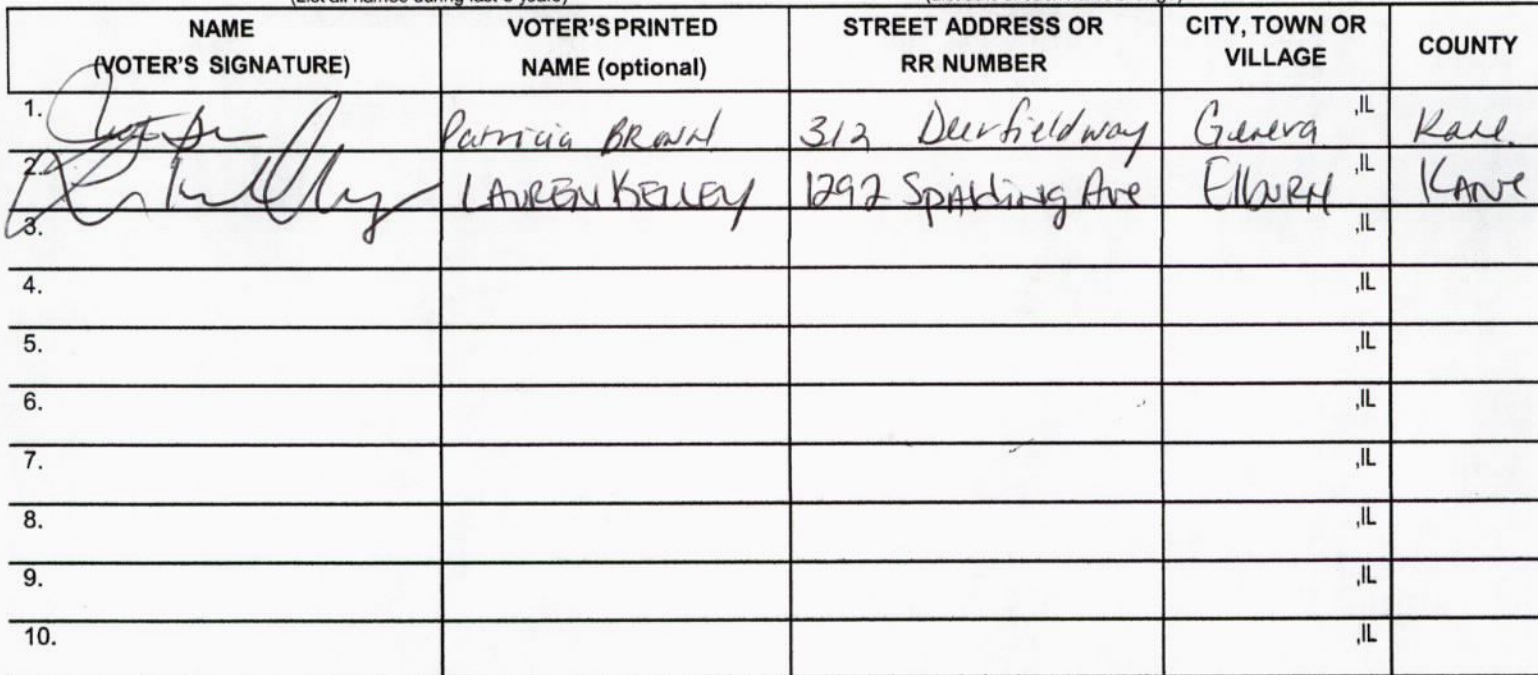 NAME
(VOTER'S SIGNATURE)
VOTER'S PRINTED
NAME (optional)
STREET ADDRESS OR
RR NUMBER
CITY, TOWN OR
VILLAGE
COUNTY
1. Patricia BROWN 312 Deerfield way Geneva ,IL Kane
2. LAUREN KELLEY 1292 Spalding Ave Elburn ,IL KANE
3. ,IL
4. ,IL
5. ,IL
6. ,IL
7. ,IL
8. ,IL
9. ,IL
10. ,IL